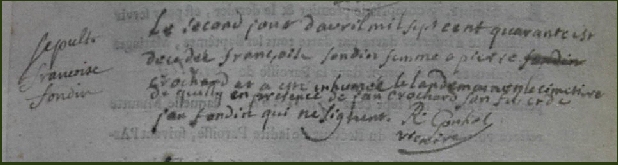 sepult
francoise
fondin
Le second jour d'avril mil sept cent quarante est
decedee francoise fondin femme a pierre fondin
crochard et a este inhumee le landemain en le cimetiere
de quilly en presence de jan crochard son fils et de
jan fondin qui ne signent. R.